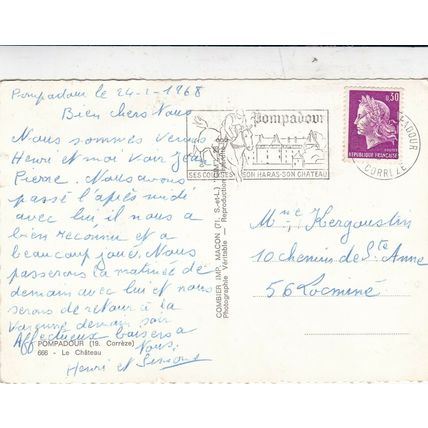 Pompadour le 24-1-1968
Bien chers Vous
Nous sommes venus
Henri et moi voir Jean
Pierre. Nous avons
passé l'après midi
avec lui il nous a
bien reconnu et a
beaucoup joué. Nous
passerons la matinée de
demain avec lui et nous
serons de retour à la
demain soir
Affectueux baisers a
Vous.
Henri et
POMPADOUR (19. Corrèze)
666 - Le Château
COMBIER IMP. MACON (71. S.-et-L.)
Photographie Véritable — Reproduction
Pompadour
SES COURSES-SON HARAS-SON CHÂTEAU
0,30
REPUBLIQUE FRANÇAISE
CORRÈZE
Mme Kergoustin
10 chemin de Ste Anne
56 Locminé